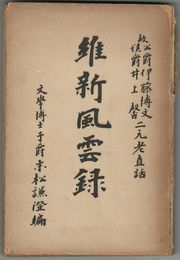 故公爵伊藤博文
故侯爵井上馨
二元老直話
維新風雲録
文學博士子爵末松謙澄編